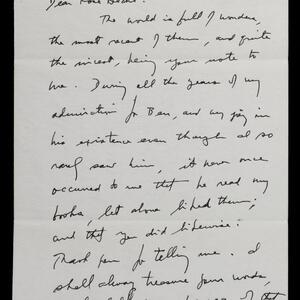 Dear
The world is full of wonders,
the most recent of them, and quite
the nicest, being your note to
me. During all the years of my
admiration for Ben, and my joy in
his existence even though I so
rarely saw him, it never once
occurred to me that he read my
books, let alone liked them;
and that you did likewise!
Thank you for telling me. I
shall always treasure your words,
of that